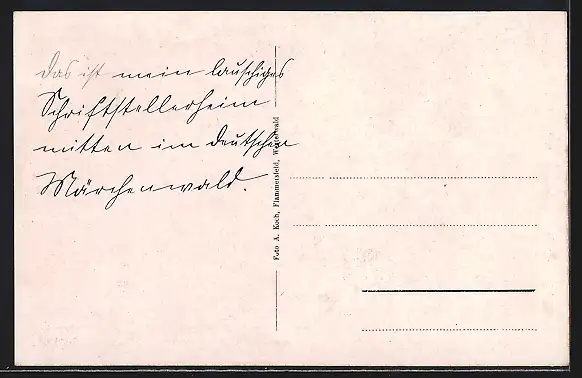 Das ist mein lauschiges
Schriftstellerheim
mitten im deutschen
Märchenwald.
Foto A. Koch, Flammersfeld, Westerwald